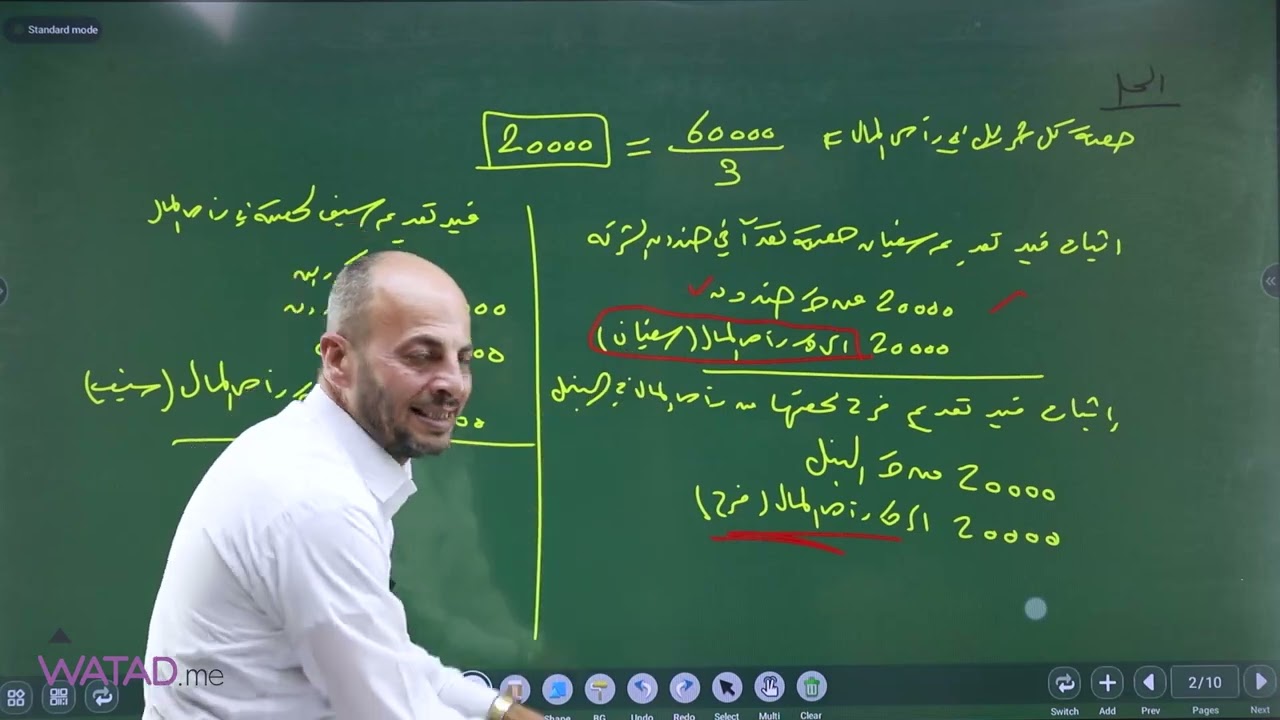 Standard mode
الحل
حصة كل شريك في رأس المال = 60000 / 3 = 20000
اثبات قيد تقديم سفيان حصته نقداً في صندوق الشركة
20000 من حـ/ صندوق
20000 الى حـ/ رأس المال (سفيان)
إثبات قيد تقديم فرح لحصتها من رأس المال في البنك
20000 من حـ/ البنك
20000 الى حـ/ رأس المال (فرح)
قيد تقديم سيف لحصته في رأس المال
رأس المال (سيف)
WATAD.me
Shape
BG
Undo
Redo
Select
Multi
Clear
Switch
Add
Prev
2/10
Pages
Next